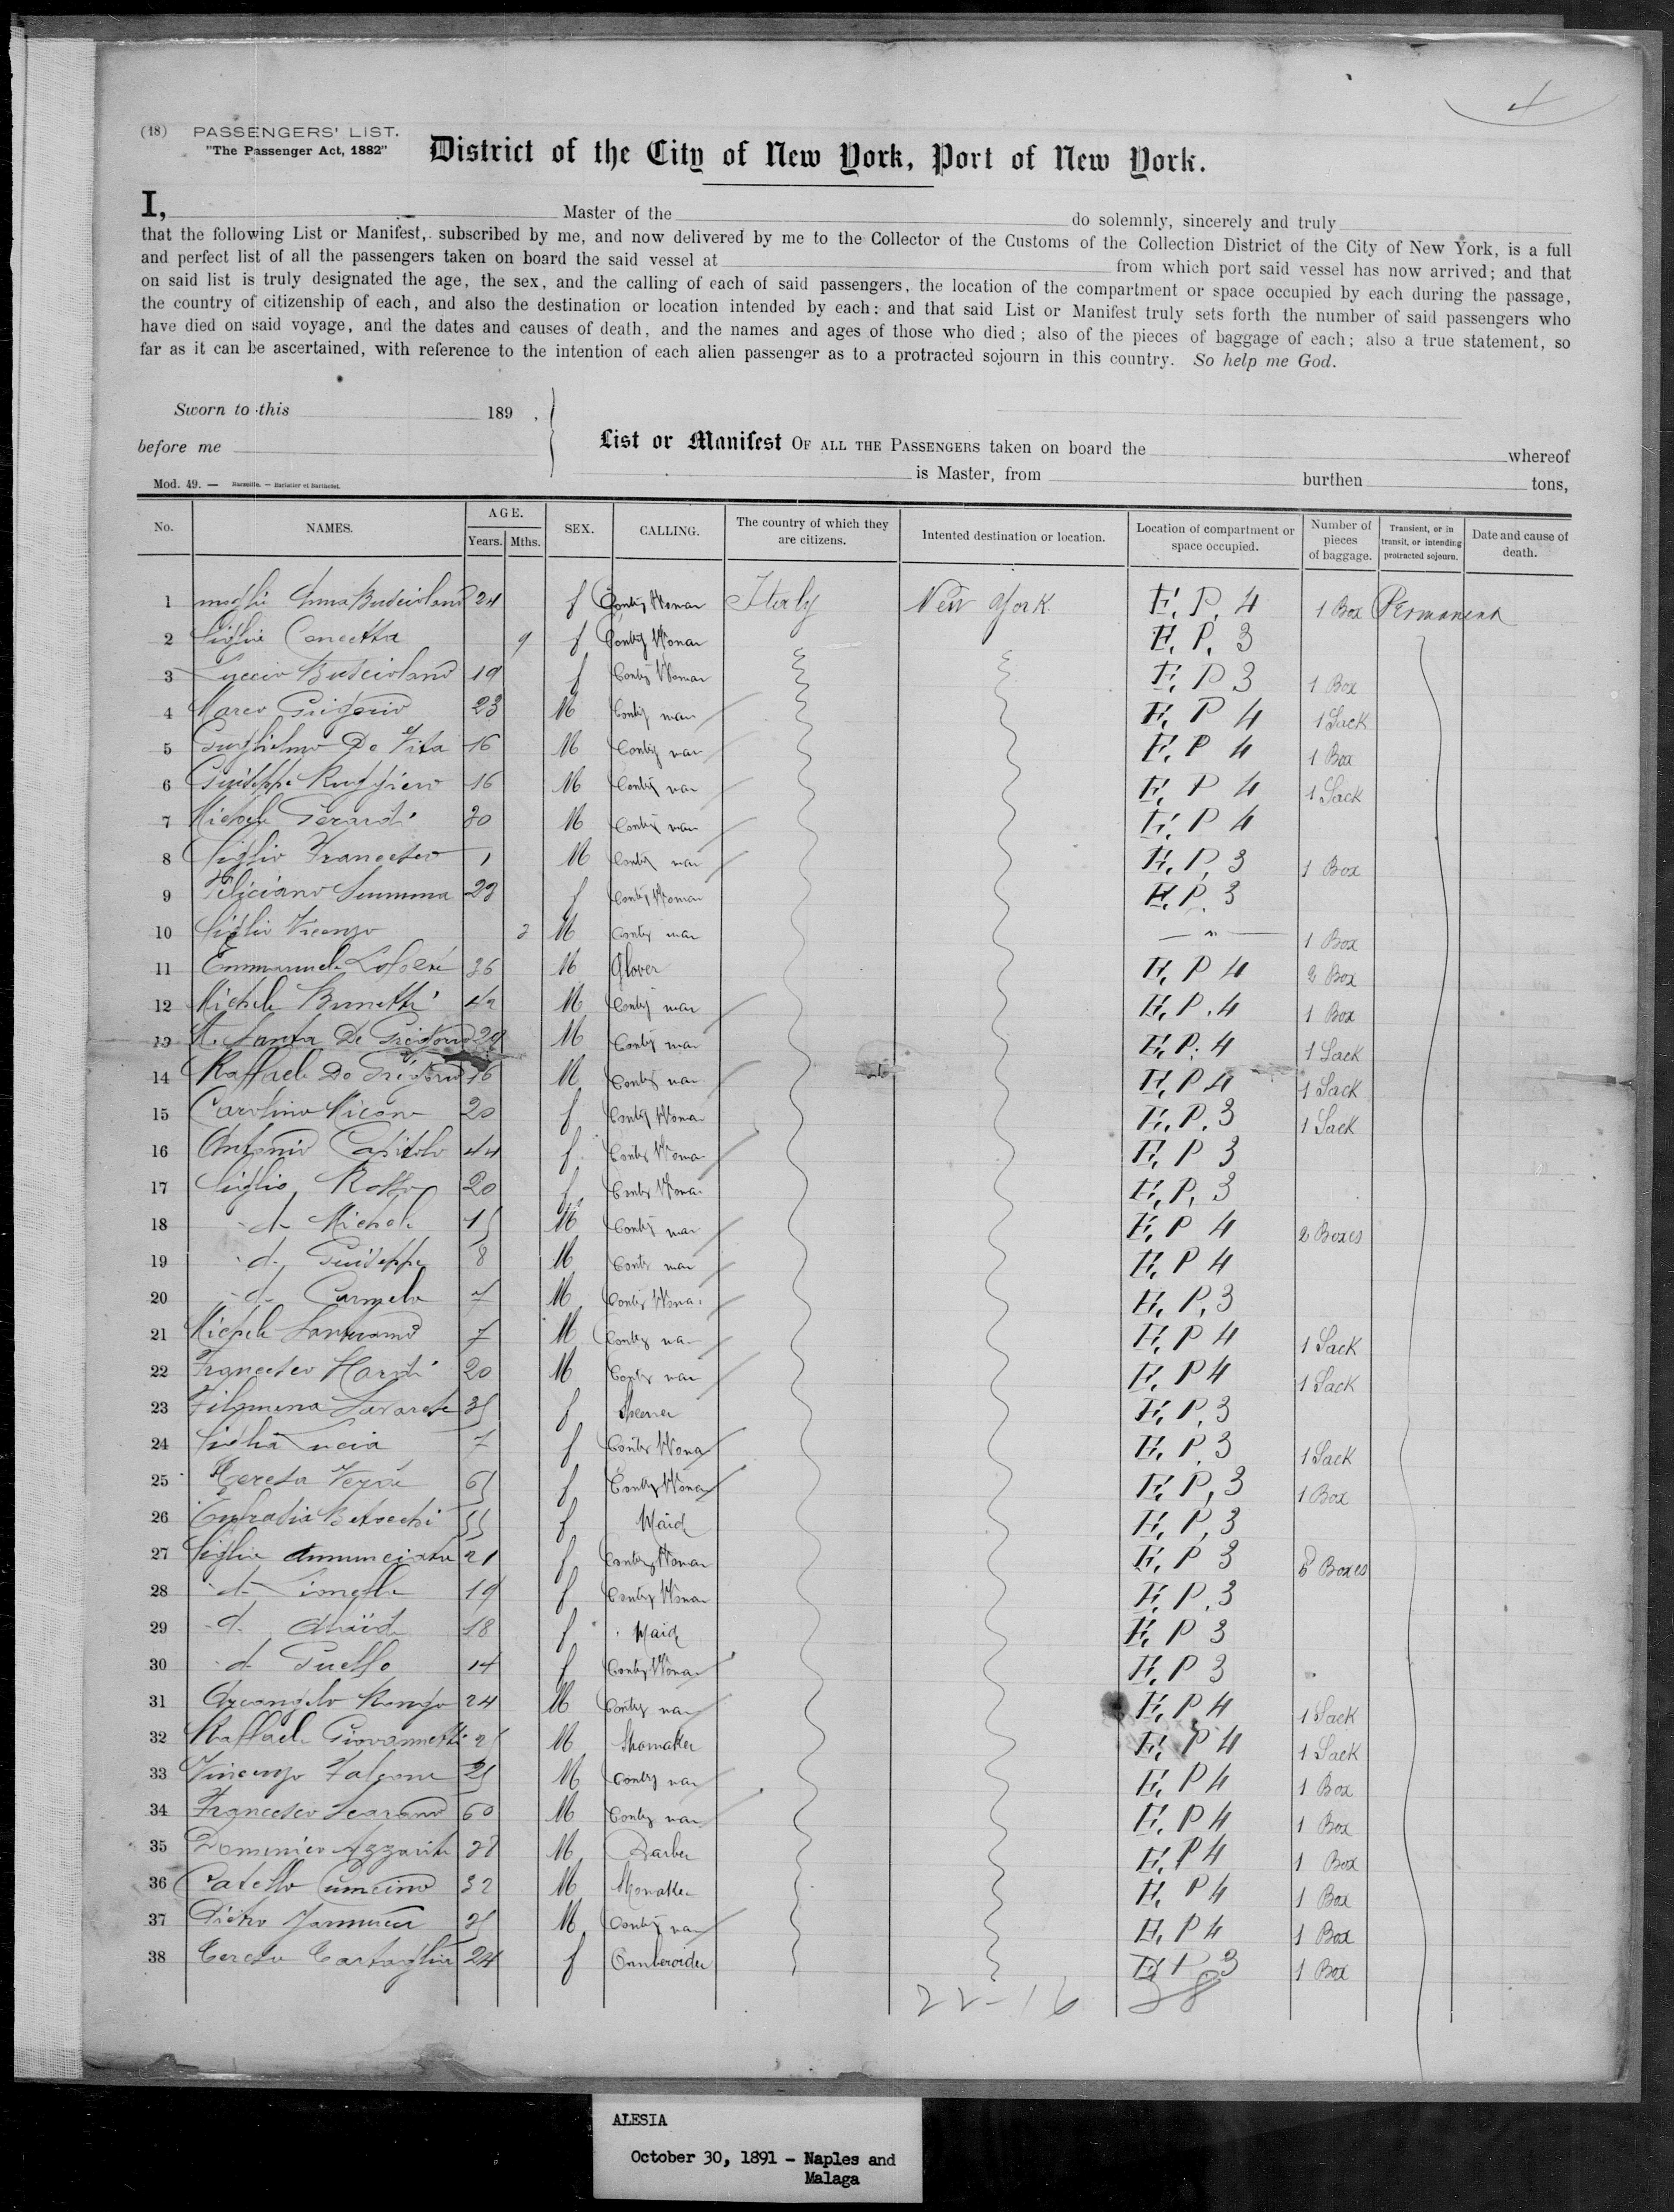 4
(18) PASSENGERS' LIST.
"The Passenger Act, 1882"
District of the City of New York, Port of New York.
I, Master of the do solemnly, sincerely and truly
that the following List or Manifest, subscribed by me, and now delivered by me to the Collector of the Customs of the Collection District of the City of New York, is a full
and perfect list of all the passengers taken on board the said vessel at from which port said vessel has now arrived; and that
on said list is truly designated the age, the sex, and the calling of each of said passengers, the location of the compartment or space occupied by each during the passage,
the country of citizenship of each, and also the destination or location intended by each: and that said List or Manifest truly sets forth the number of said passengers who
have died on said voyage, and the dates and causes of death, and the names and ages of those who died; also of the pieces of baggage of each; also a true statement, so
far as it can be ascertained, with reference to the intention of each alien passenger as to a protracted sojourn in this country. So help me God.
Sworn to this 189 ,
before me
List or Manifest OF ALL THE PASSENGERS taken on board the whereof
is Master, from burthen tons,
Mod. 49. — Marseille. — Barlatier et Barthelet.
No. NAMES. AGE. Years. Mths. SEX. CALLING. The country of which they are citizens. Intented destination or location. Location of compartment or space occupied. Number of pieces of baggage. Transient, or in transit, or intending protracted sojourn. Date and cause of death.
1 moglie Anna 24 f Contry Woman Italy New York E. P. 4 1 Box Permanent
2 figlia Concetta 9 f Contry Woman E. P. 3
3 19 f Contry Woman E. P 3 1 Box
4 Marco Grigorio 23 M Contry man E. P 4 1 Sack
5 Guglielmo De Vita 16 M Contry man E. P 4 1 Box
6 Guiseppe Ruggiero 16 M Contry man E. P 4 1 Sack
7 Michele Gerardi 30 M Contry man E. P 4
8 figlio Francesco 1 M Contry man E. P. 3 1 Box
9 Feliciano Summa 23 f Contry Woman E. P. 3
10 figlio Vicenzo M Contry man — " — 1 Box
11 Emmanuele 36 M Glover E. P 4 2 Box
12 Michele Brunetti 42 M Contry man E. P. 4 1 Box
13 M. Santa De Gregorio 29 M Contry man E. P. 4 1 Sack
14 Raffaele De Gregorio 16 M Contry man E. P 4 1 Sack
15 Carolina Micone 20 f Contry Woman E. P. 3 1 Sack
16 Antonio Capitolo 44 f Contry Woman E. P 3
17 figlio Rosa 20 f Contry Woman E. P. 3
18 - d - Michele 15 M Contry man E. P 4 2 Boxes
19 - d. Guiseppe 8 M Contry man E. P 4
20 - d - Carmela 7 M Contry Woman E. P. 3
21 Michele 7 M Contry man E. P 4 1 Sack
22 Francesco 20 M Contry man E. P 4 1 Sack
23 Filomena Savarese 35 f E. P. 3
24 figlia Lucia 7 f Contry Woman E. P. 3 1 Sack
25 Teresa 65 f Contry Woman E. P, 3 1 Box
26 55 f Maid E. P, 3
27 figlia Annunciata 21 f Contry Woman E. P 3 Boxes
28 - d - 19 f Contry Woman E. P. 3
29 - d. 18 f Maid E. P 3
30 - d - 14 f Contry Woman E. P 3
31 Arcangelo 24 M Contry man E. P 4 1 Sack
32 Raffaele Giovannetti M Shomaker E. P 4 1 Sack
33 Vincenzo Falcone 25 M Contry man E. P 4 1 Box
34 Francesco 60 M Contry man E. P 4 1 Box
35 Domenico Azzarito M Barber E. P 4 1 Box
36 Catello 32 M Shomaker E. P 4 1 Box
37 Pietro 25 M Contry man E. P 4 1 Box
38 Teresa Cartaglia 24 f E P. 3 1 Box
22 - 16 38
ALESIA
October 30, 1891 - Naples and
Malaga